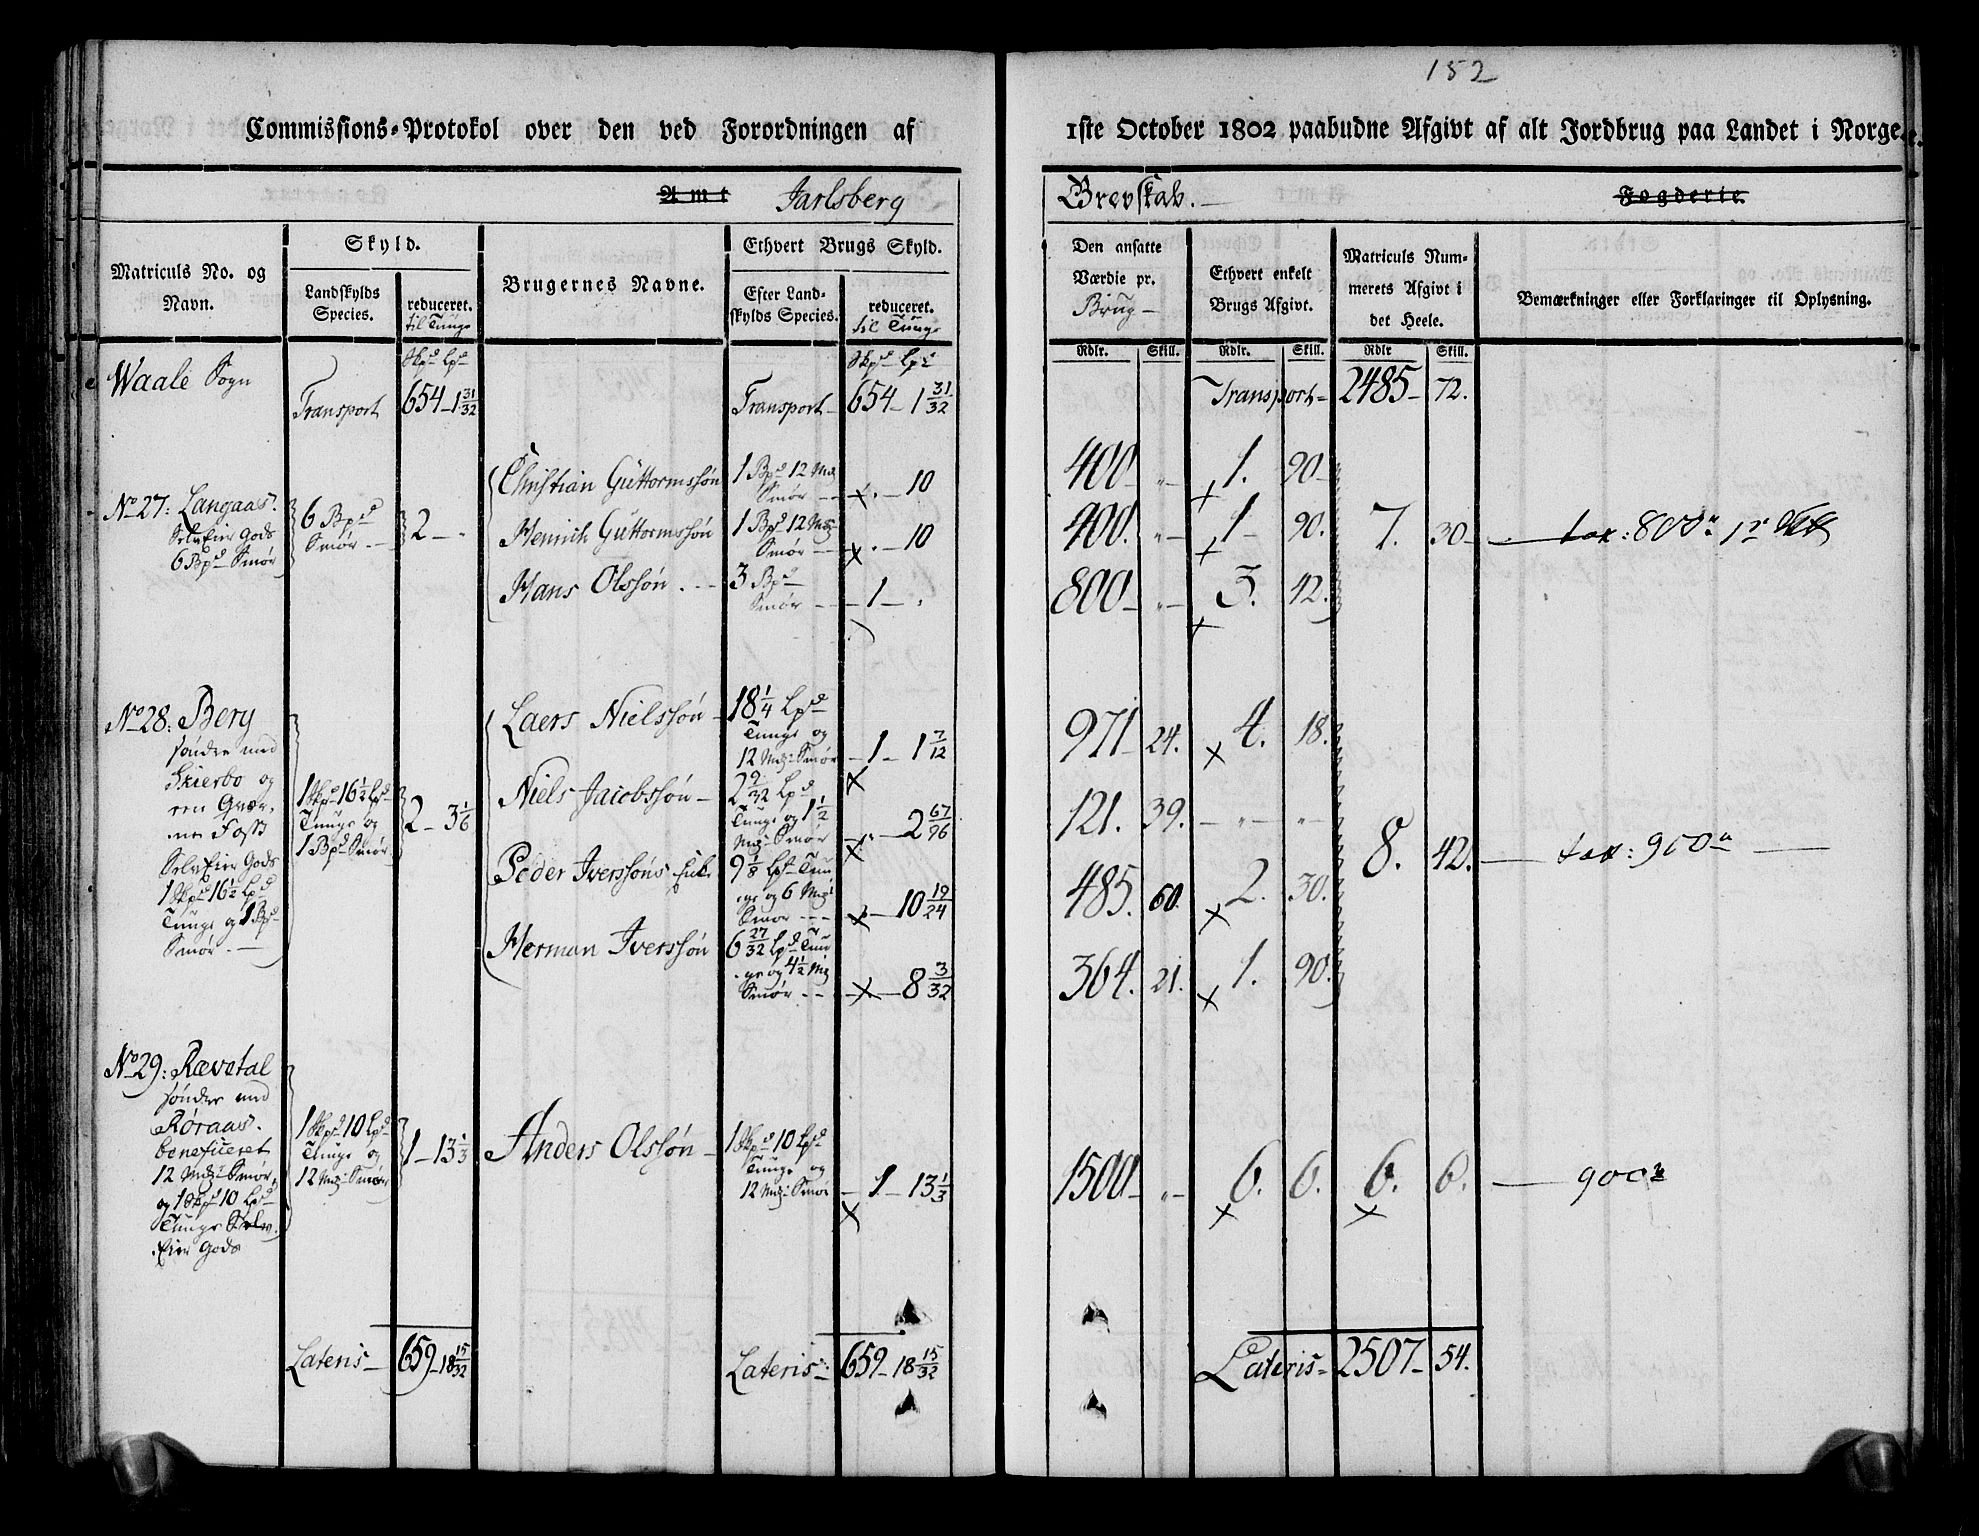 152
Commissions-Protokol over den ved Forordningen af
1ste October 1802 paabudne Afgivt af alt Jordbrug paa Landet i Norge.
Amt Jarlsberg
Grevskab. Fogderie.
Matriculs No. og
Navn.
Skyld.
Landskylds
Species.
reduceret.
til Tunge
Brugernes Navne.
Ethvert Brugs Skyld.
Efter Land-
skylds Species.
reduceret.
til Tunge
Den ansatte
Værdie pr.
Brug
Ethvert enkelt
Brugs Afgivt.
Matriculs Num-
merets Afgivt i
det Heele.
Bemærkninger eller Forklaringer til Oplysning.
Rdlr. Skill. Rdlr. Skill. Rdlr Skill.
Skpd Lpd
Skpd Lpd
Waale Sogn
Transport 654 - 1 31/32
Transport - 654 - 1 31/32
Transport - 2485 - 72.
No 27: Langaas.
SelvEier Gods
6 Bpd Smør
6 Bpd
Smør
2 - "
Christian Guttormssøn 1 Bpd 12 Mrk
Smør - 10
400 " 1. 90
Henrich Guttormssøn 1 Bpd 12 Mrk
Smør - 10
400. " 1 90.
7. 30 - tax: 800
Hans Olssøn 3 Bpd
Smør - 1 - "
800 " 3. 42.
No 28: Berg
søndre med
Skierbo og
een Qvær-
ne Foss
SelvEier Gods
1 Skpd 16 1/2 Lpd
Tunge og 1 Bpd
Smør
1 Skpd 16 1/2 Lpd
Tunge og
1 Bpd Smør
2 - 3 1/6
Laers Nielssøn - 18 1/4 Lpd
Tunge og
12 Mrk Smør - 1 - 1 7/12
971 - 24. 4. 18.
Niels Jacobssøn - 2 9/32 Lpd
Tunge og 1 1/2
Mrk Smør - 2 67/96
121. 39. - " "
8. 42. - tax: 900
Peder Iverssøns Enke 9 1/8 Lpd Tun
ge og 6 Mrk
Smør - 10 19/24
485. 60. 2. 30.
Herman Iverssøn 6 27/32 Lpd Tun
ge og 4 1/2 Mrk
Smør - 8 3/32
364. 21. 1. 90.
No 29: Rævetal
søndre med
Røraas.
beneficeret
12 Mrk Smør,
og 1 Skpd 10 Lpd
Tunge Selv
Eier Gods
1 Skpd 10 Lpd
Tunge og
12 Mrk Smør
1 - 13 1/3
Anders Olssøn - 1 Skpd 10 Lpd
Tunge og
12 Mrk Smør - 1 - 13 1/3
1500 - " 6. 6. 6. 6. - 900
Lateris - 659 - 18 15/32
Lateris - 659 - 18 15/32
Lateris - 2507 - 54.